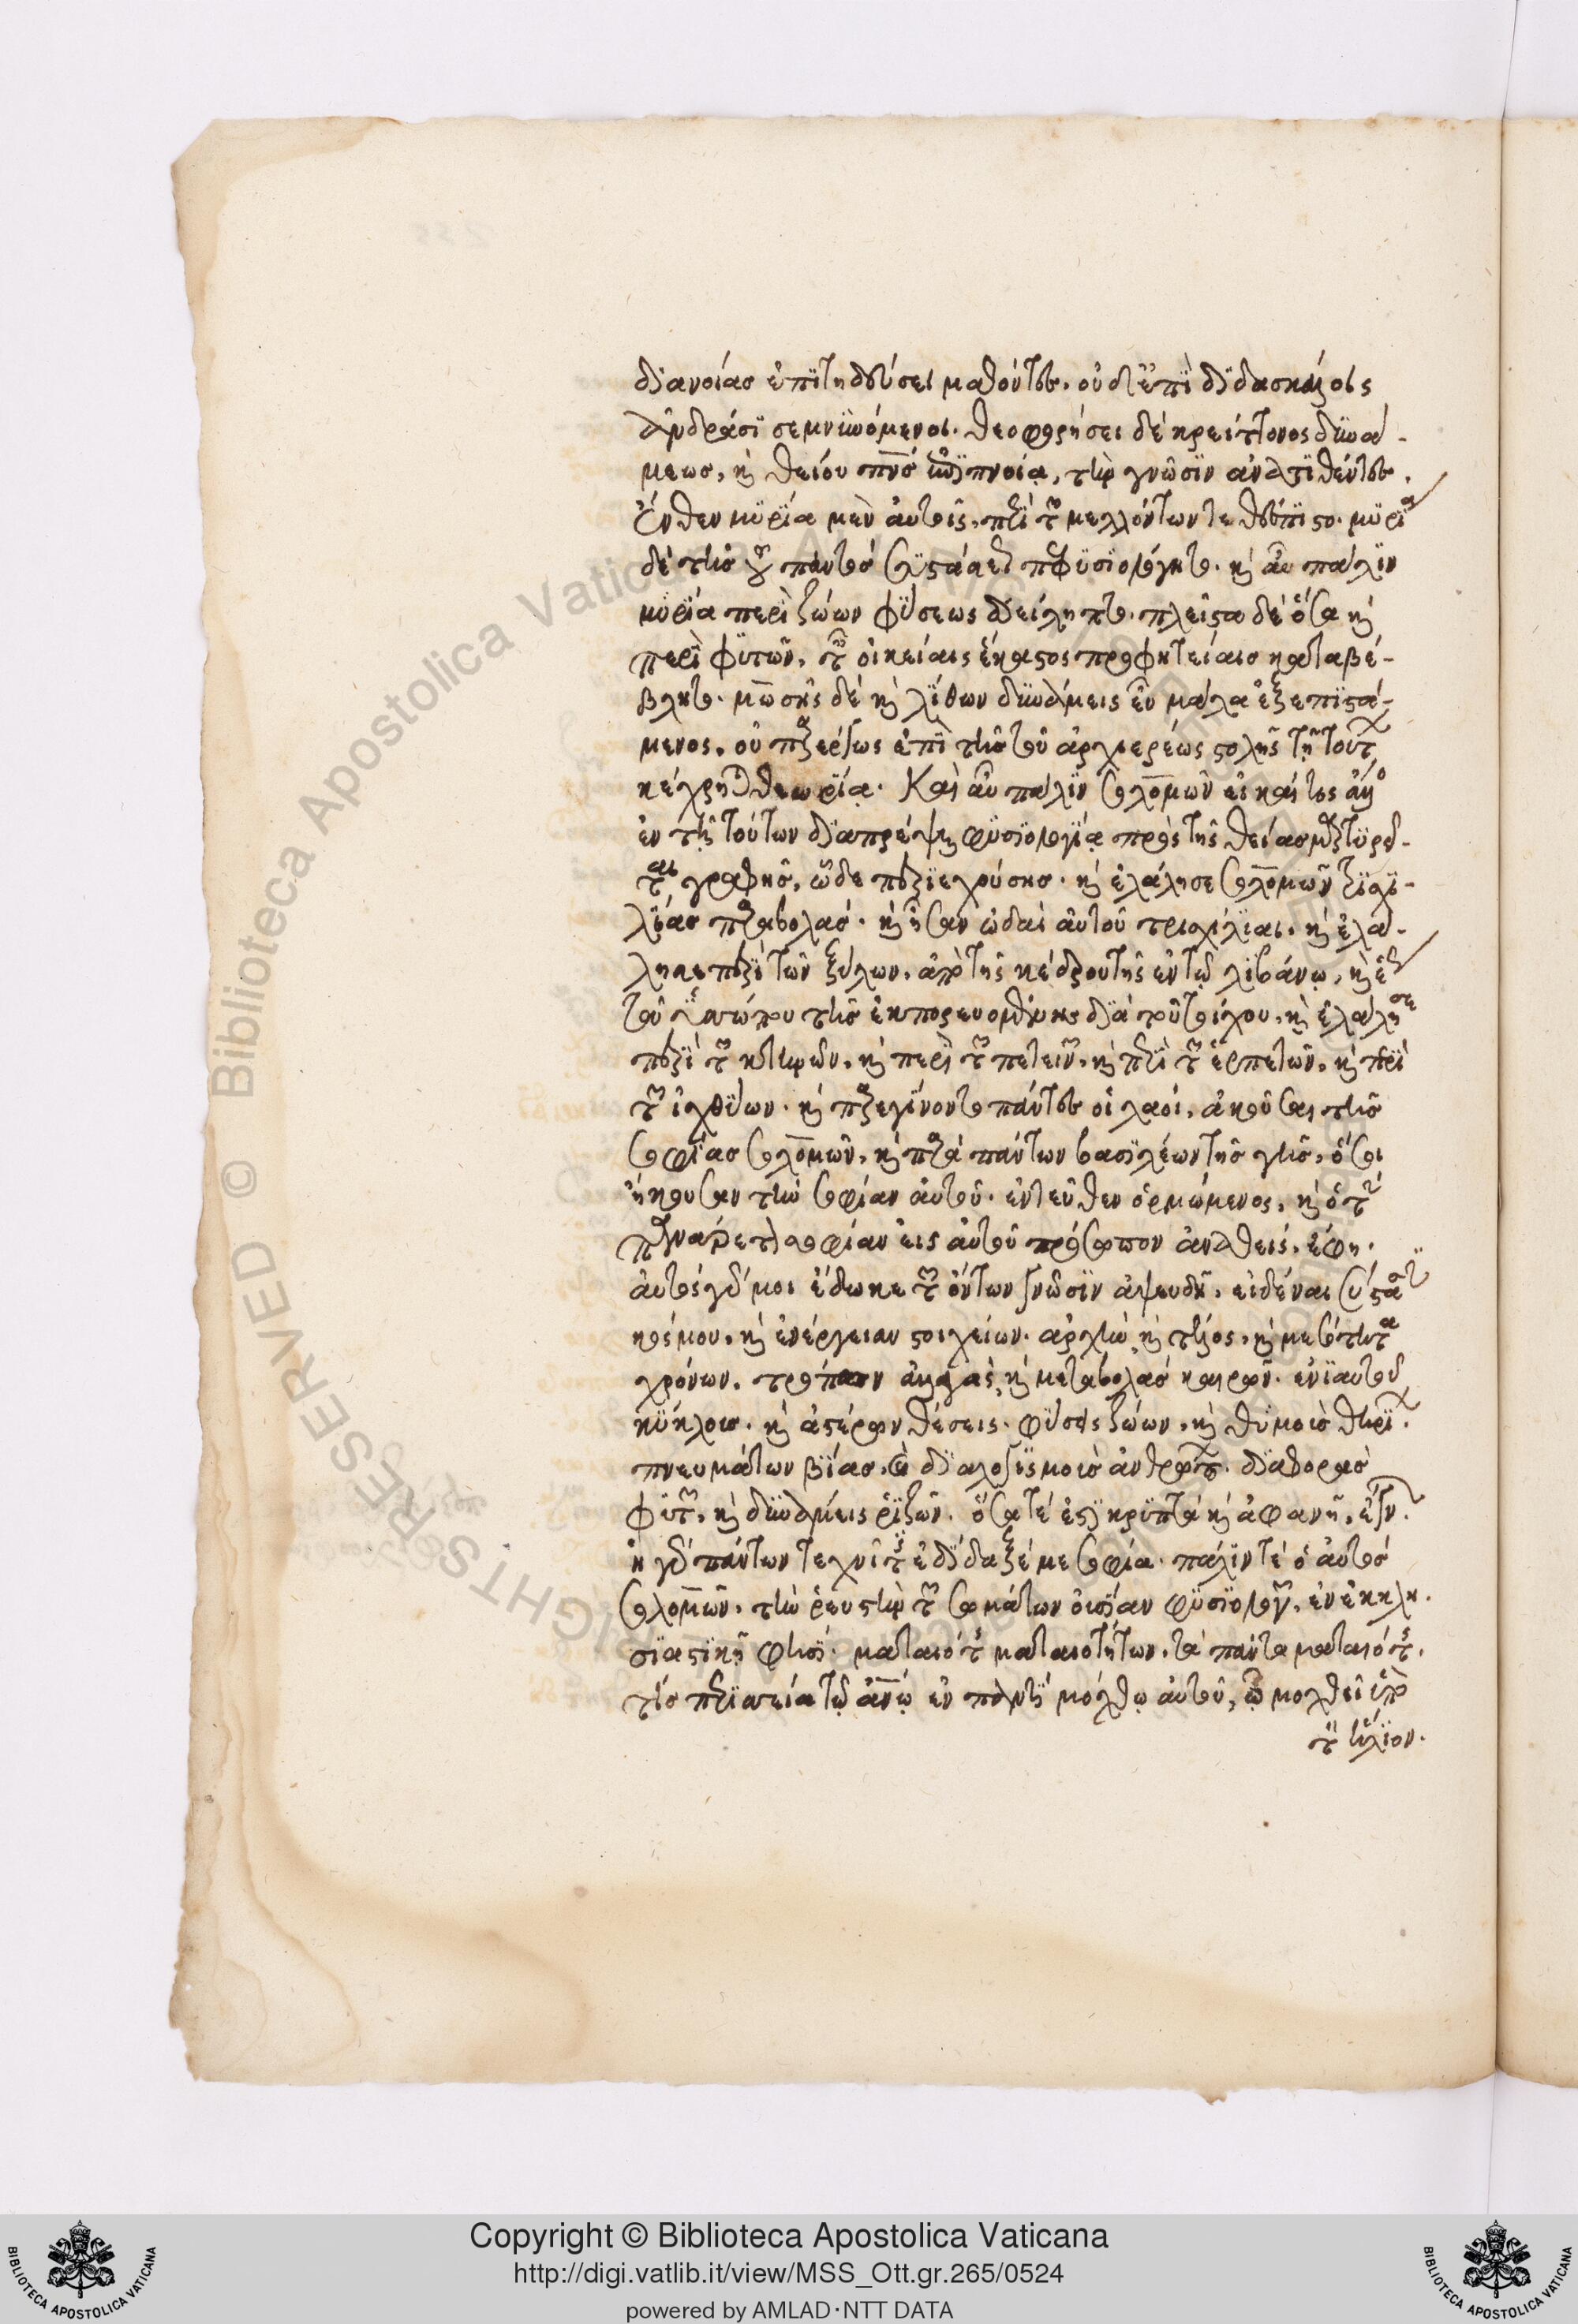 διανοίας ἐπιτηδεύσει μαθόντες. οὐδ' ἐπὶ διδασκάλοις
ἀνδράσι σεμνυνόμενοι. θεοφορήσει δὲ κρείττονος δυνά-
μεως, καὶ θείου πνς ἐπιπνοίᾳ, τὴν γνῶσιν ἀνατιθέντες.
Ἔνθεν μυρία μὲν αὐτοῖς, περὶ τῶν μελλόντων τεθέσπιστο. μυρία
δὲ τῆς τοῦ παντὸς συστάσεως πεφυσιολόγητο. καὶ αὖ πάλιν
μυρία περὶ ζώων φύσεως διείληπτο. πλεῖστα δὲ ὅσα καὶ
περὶ φυτῶν, ταῖς οἰκείαις ἕκαστος προφητείαις καταβέ-
βλητο. μωσῆς δὲ καὶ λίθων δυνάμεις εὖ μάλα ἐξεπιστά-
μενος, οὐ παρέργως ἐπὶ τῆς τοῦ ἀρχιερέως στολῆς τῇ τούτων
κέχρηται θεωρίᾳ. Καὶ αὖ πάλιν σολομῶν εἰ καί τις ἄλλος
ἐν τῇ τούτων διαπρέψαι φυσιολογίᾳ πρὸς τῆς θείας μαρτυρεῖ-
ται γραφῆς, ὧδε περιεχούσης. καὶ ἐλάλησε σολομῶν τρισχι-
λίας παραβολάς. καὶ ἦσαν ᾠδαὶ αὐτοῦ τρισχίλιαι, καὶ ἐλά-
λησε περὶ τῶν ξύλων, ἀπὸ τῆς κέδρου τῆς ἐν τῷ λιβάνῳ, καὶ ἕως
τοῦ ὑσσώπου τῆς ἐκπορευομένης διὰ τοῦ τοίχου, καὶ ἐλάλησε
περὶ τῶν κτηνῶν, καὶ περὶ τῶν πετεινῶν, καὶ περὶ τῶν ἑρπετῶν, καὶ περὶ
τῶν ἰχθύων. καὶ παρεγίνοντο πάντες οἱ λαοί, ἀκοῦσαι τῆς
σοφίας σολομῶν, καὶ παρὰ πάντων βασιλέων τῆς γῆς, ὅσοι
ἤκουσαν τὴν σοφίαν αὐτοῦ. ἐντεῦθεν ὁρμώμενος, καὶ ὁ τὴν
πανάρετον σοφίαν εἰς αὐτοῦ πρόσωπον ἀναθείς, ἔφη.
αὐτὸς γάρ μοι ἔδωκε τῶν ὄντων γνῶσιν ἀψευδῆ, εἰδέναι σύστασιν
κόσμου, καὶ ἐνέργειαν στοιχείων. ἀρχὴν καὶ τέλος, καὶ μεσότητα
χρόνων. τροπῶν ἀλλαγὰς καὶ μεταβολὰς καιρῶν. ἐνιαυτοῦ
κύκλους. καὶ ἀστέρων θέσεις. φύσεις ζώων, καὶ θυμοὺς θηρίων.
πνευμάτων βίας, καὶ διαλογισμοὺς ἀνθρώπων. διαφορὰς
φυτῶν, καὶ δυνάμεις ῥιζῶν. ὅσα τέ ἐστι κρυπτὰ καὶ ἀφανῆ, ἔγνων.
ἡ γὰρ πάντων τεχνῖτις ἐδίδαξέ με σοφία. πάλιν τὲ ὁ αὐτὸς
σολομῶν, τὴν ῥευστὴν τῶν σωμάτων οὐσίαν φυσιολογῶν, ἐν ἐκκλη-
σιαστικῇ φησί. ματαιότης ματαιοτήτων, τὰ πάντα ματαιότης.
τίς περισσεία τῷ ἀνῳ ἐν παντὶ μόχθῳ αὐτοῦ, ᾧ μοχθεῖ ὑπὸ
τὸν ἥλιον.
Copyright © Biblioteca Apostolica Vaticana
http://digi.vatlib.it/view/MSS_Ott.gr.265/0524
powered by AMLAD·NTT DATA